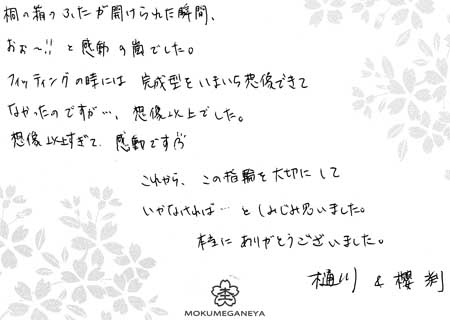 桐の箱のふたが開けられた瞬間、
おぉ〜!! と感動の嵐でした。
フィッティングの時には 完成型をいまいち想像できて
なかったのですが…、想像以上でした。
想像以上すぎて、感動です
これから、この指輪を大切にして
いかなければ… としみじみ思いました。
本当に ありがとうございました。
樋川 & 櫻渕
MOKUMEGANEYA